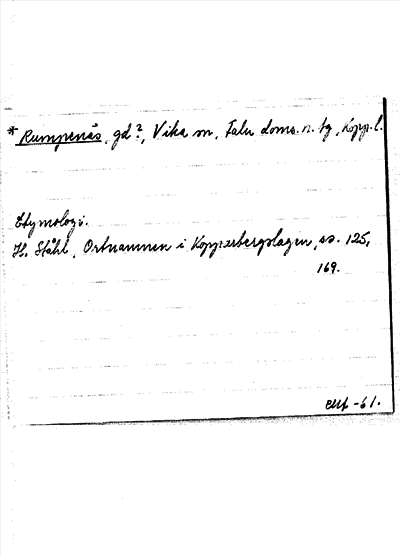 * Rumpenäs, gd?, Vika sn, Falu doms. n. tg, Kopp. l.
Etymologi.
H. Ståhl, Ortnamnen i Kopparbergslagen, ss. 125,
169.
-61.